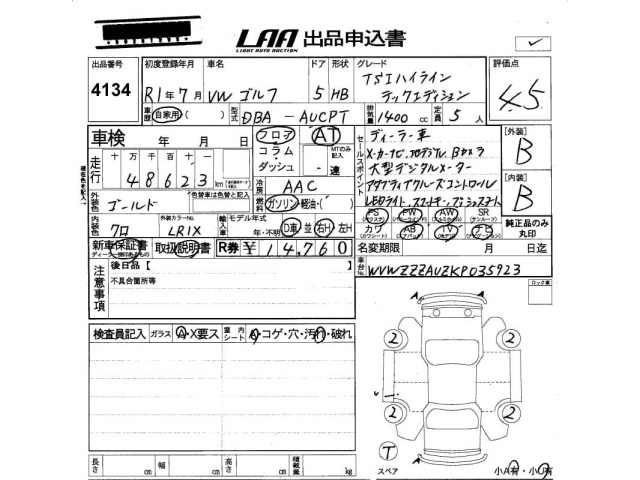 LAA 出品申込書
LIGHT AUTO AUCTION
出品番号 4134
初度登録年月 R1年7月
車名 VW ゴルフ
ドア 5
形状 HB
グレード TSIハイライン テックエディション
評価点 4.5
車歴 自家用・( )
型式 DBA - AUCPT
排気量 1400 cc
定員 5 人
車検 年 月 日
フロア AT
コラム・ダッシュ
MTのみ記入 - 速
セールスポイント
ディーラー車
メーカーナビ.地デジTV.Bカメラ
大型デジタルメーター
アダプティブクルーズコントロール
[外装] B
[内装] B
走行 十 万 千 百 十 一
48623 km
冷房 AAC
外装色 ゴールド
色替車は色替と記入
燃料 ガソリン・軽油・( )
PS PW AW SR
カワ AB TV ナビ
純正品のみ丸印
内装色 クロ
外装カラーNo. LR1X
輸入車 モデル年式 年・不明 D車 並 右H 左H
新車保証書 取扱説明書 R券 ¥ 14,760
名変期限 月 日迄
車台No. WVWZZZAUZKP035923
注意事項
後日品【
不具合箇所等
ロック車
検査員記入 ガラス A・X要ス 室内シート A・コゲ・穴・汚れ・破れ
2 2
2 2
T
スペア
長さ cm 幅 cm 高さ cm 積載量 kg
小A有・小U有